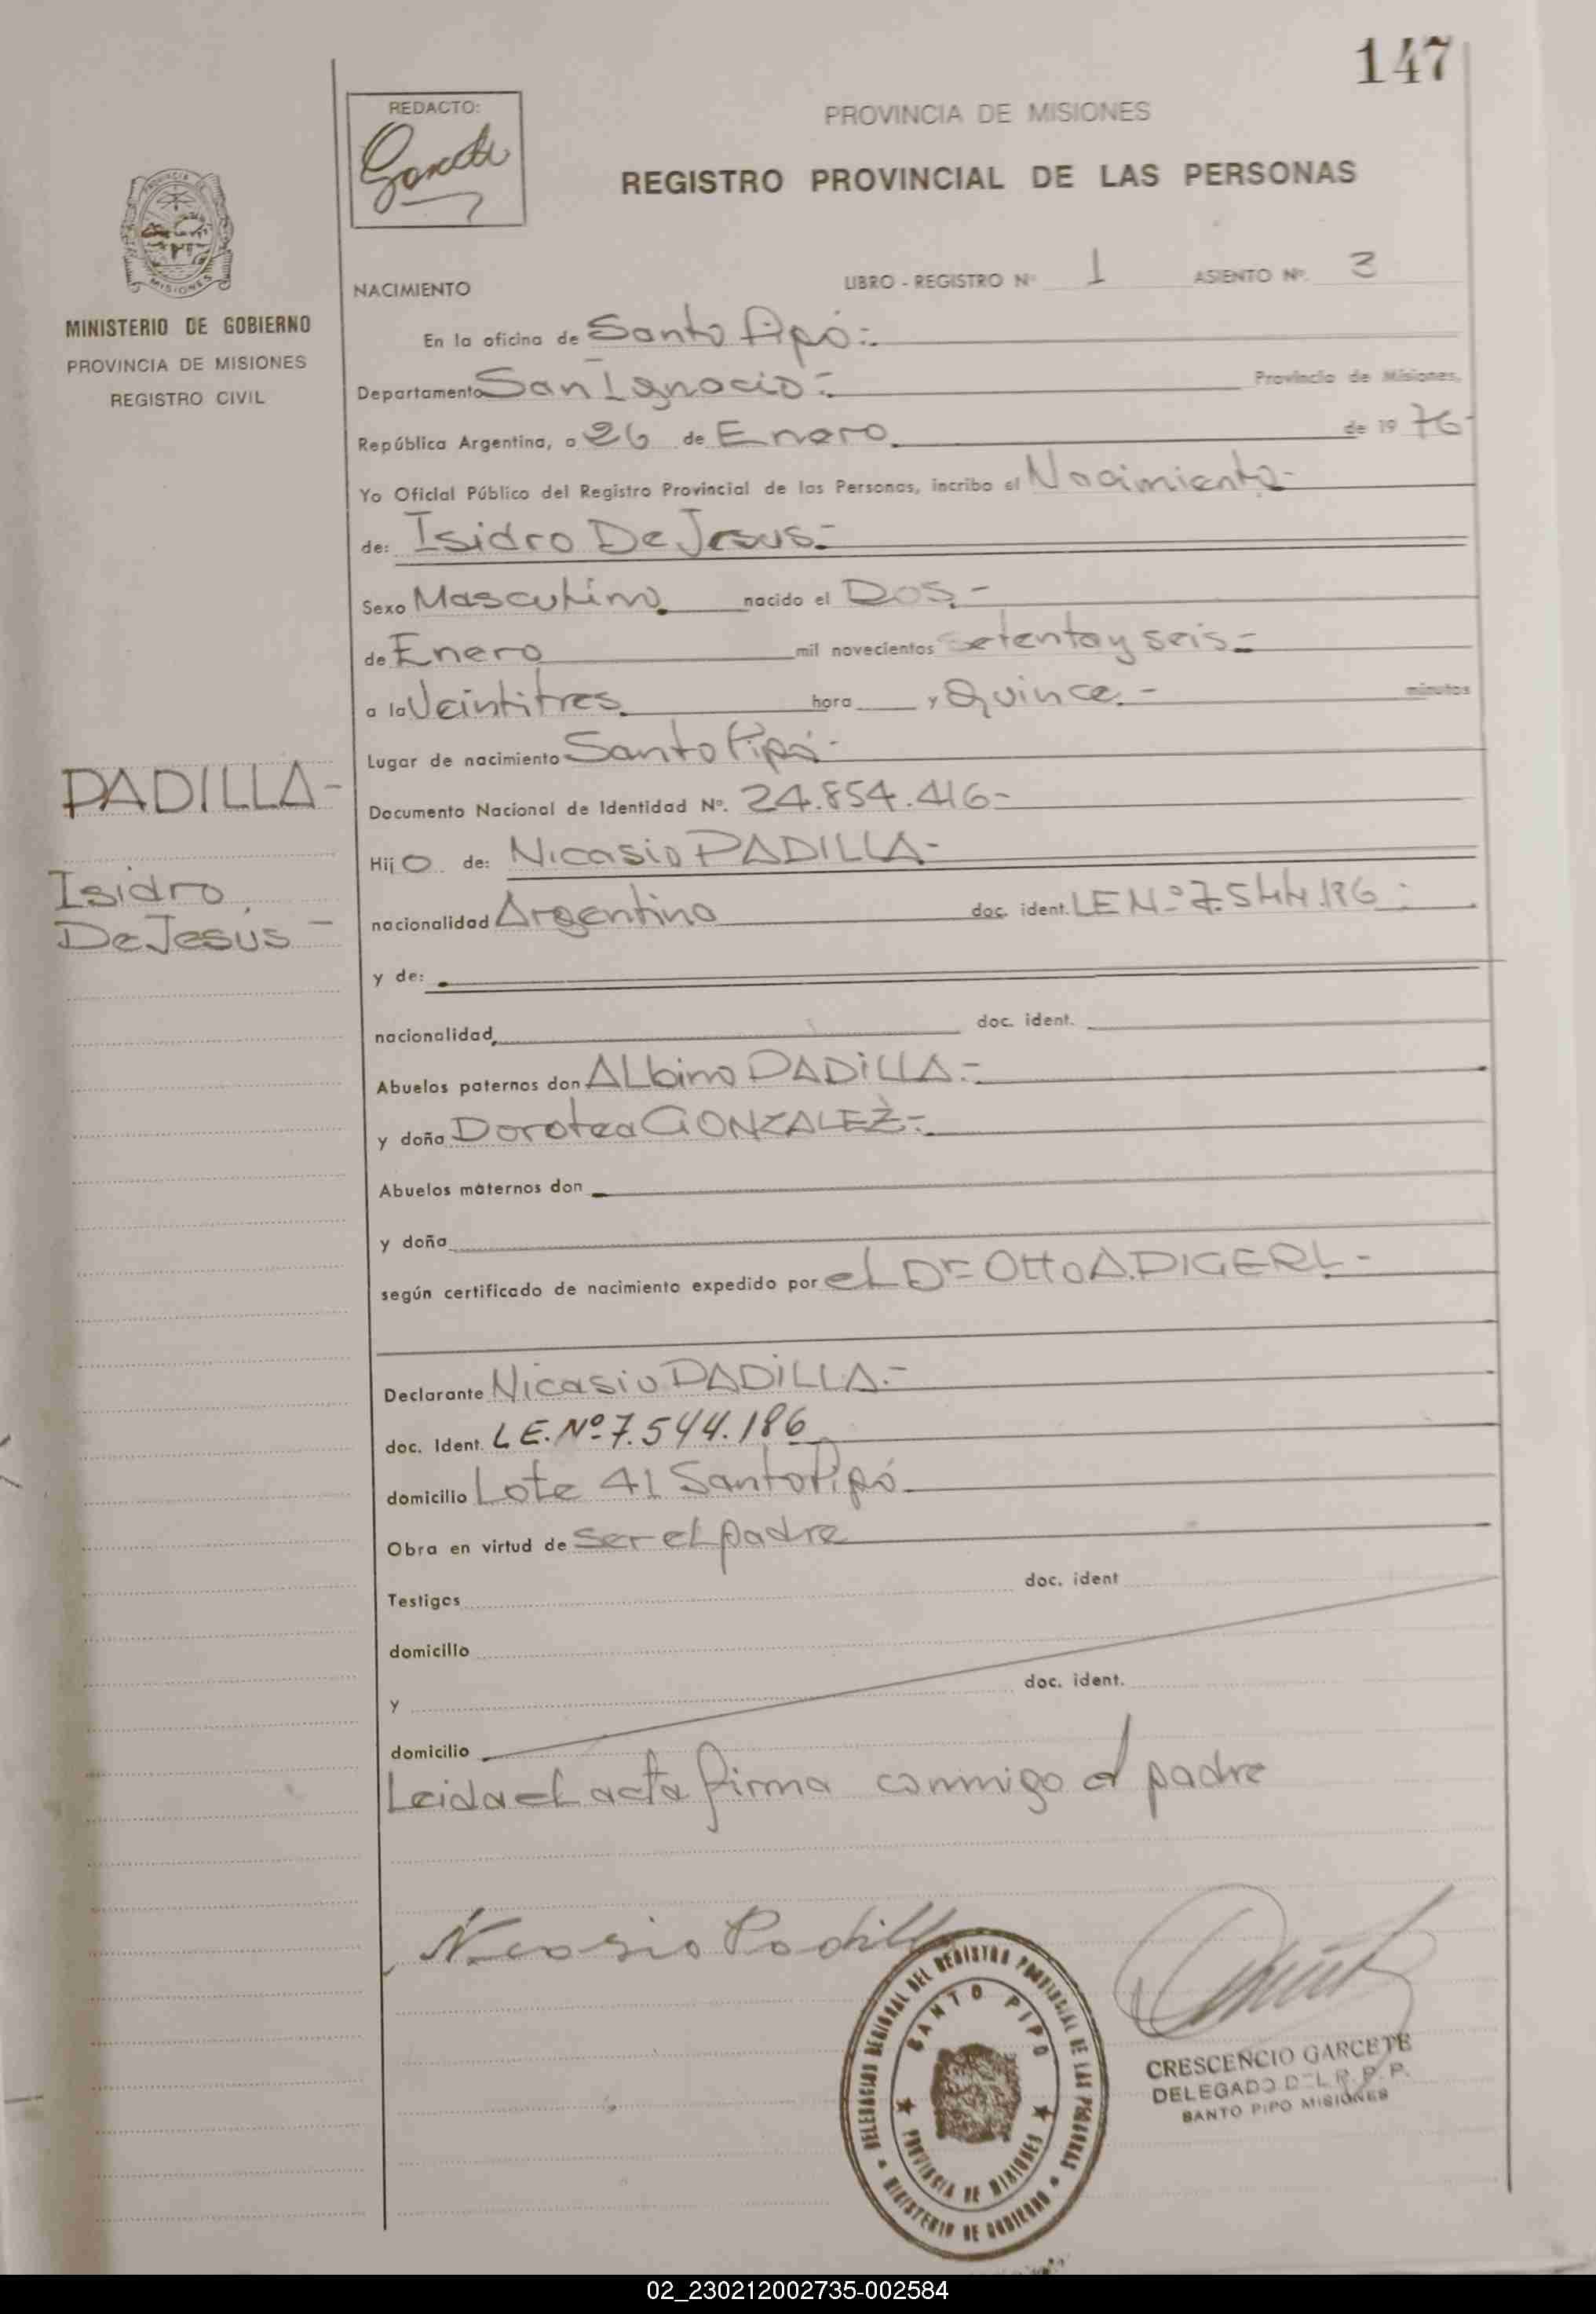 147
REDACTO:
PROVINCIA DE MISIONES
REGISTRO PROVINCIAL DE LAS PERSONAS
PROVINCIA DE
MISIONES
MINISTERIO DE GOBIERNO
PROVINCIA DE MISIONES
REGISTRO CIVIL
NACIMIENTO
LIBRO - REGISTRO Nº 1 ASIENTO Nº. 3
En la oficina de Santo Pipó:-
Departamento San Ignacio:- Provincia de Misiones,
República Argentina, a 26 de Enero de 1976-
Yo Oficial Público del Registro Provincial de las Personas, incribo el Nacimiento-
de: Isidro De Jesus.=
Sexo Masculino. nacido el Dos.-
de Enero mil novecientos setenta y seis.=
a la Veintitres. hora y Quince.- minutos
Lugar de nacimiento Santo Pipó.-
Documento Nacional de Identidad Nº. 24.854.416-
PADILLA-
Hijo de: Nicasio PADILLA.-
Isidro
De Jesús -
nacionalidad Argentino doc. ident. LE Nº 7.544.186.:
y de:
nacionalidad doc. ident.
Abuelos paternos don ALbino PADiLLA.-
y doña Dorotea GONZALEZ:-
Abuelos maternos don
y doña
según certificado de nacimiento expedido por eL Dr= Otto A. DIGERL.-
Declarante Nicasio PADiLLA.-
doc. Ident. LE. Nº 7.544.186
domicilio Lote 41 Santo Pipó
Obra en virtud de ser eL padre
Testigos doc. ident
domicilio
y doc. ident.
domicilio
Leida eL acta firma conmigo el padre
Nicasio Padilla
DELEGACION REGIONAL DEL REGISTRO PROVINCIAL DE LAS PERSONAS
SANTO PIPO
PROVINCIA DE MISIONES
MINISTERIO DE GOBIERNO
CRESCENCIO GARCETE
DELEGADO DEL R. P. P.
SANTO PIPO MISIONES
02_230212002735-002584